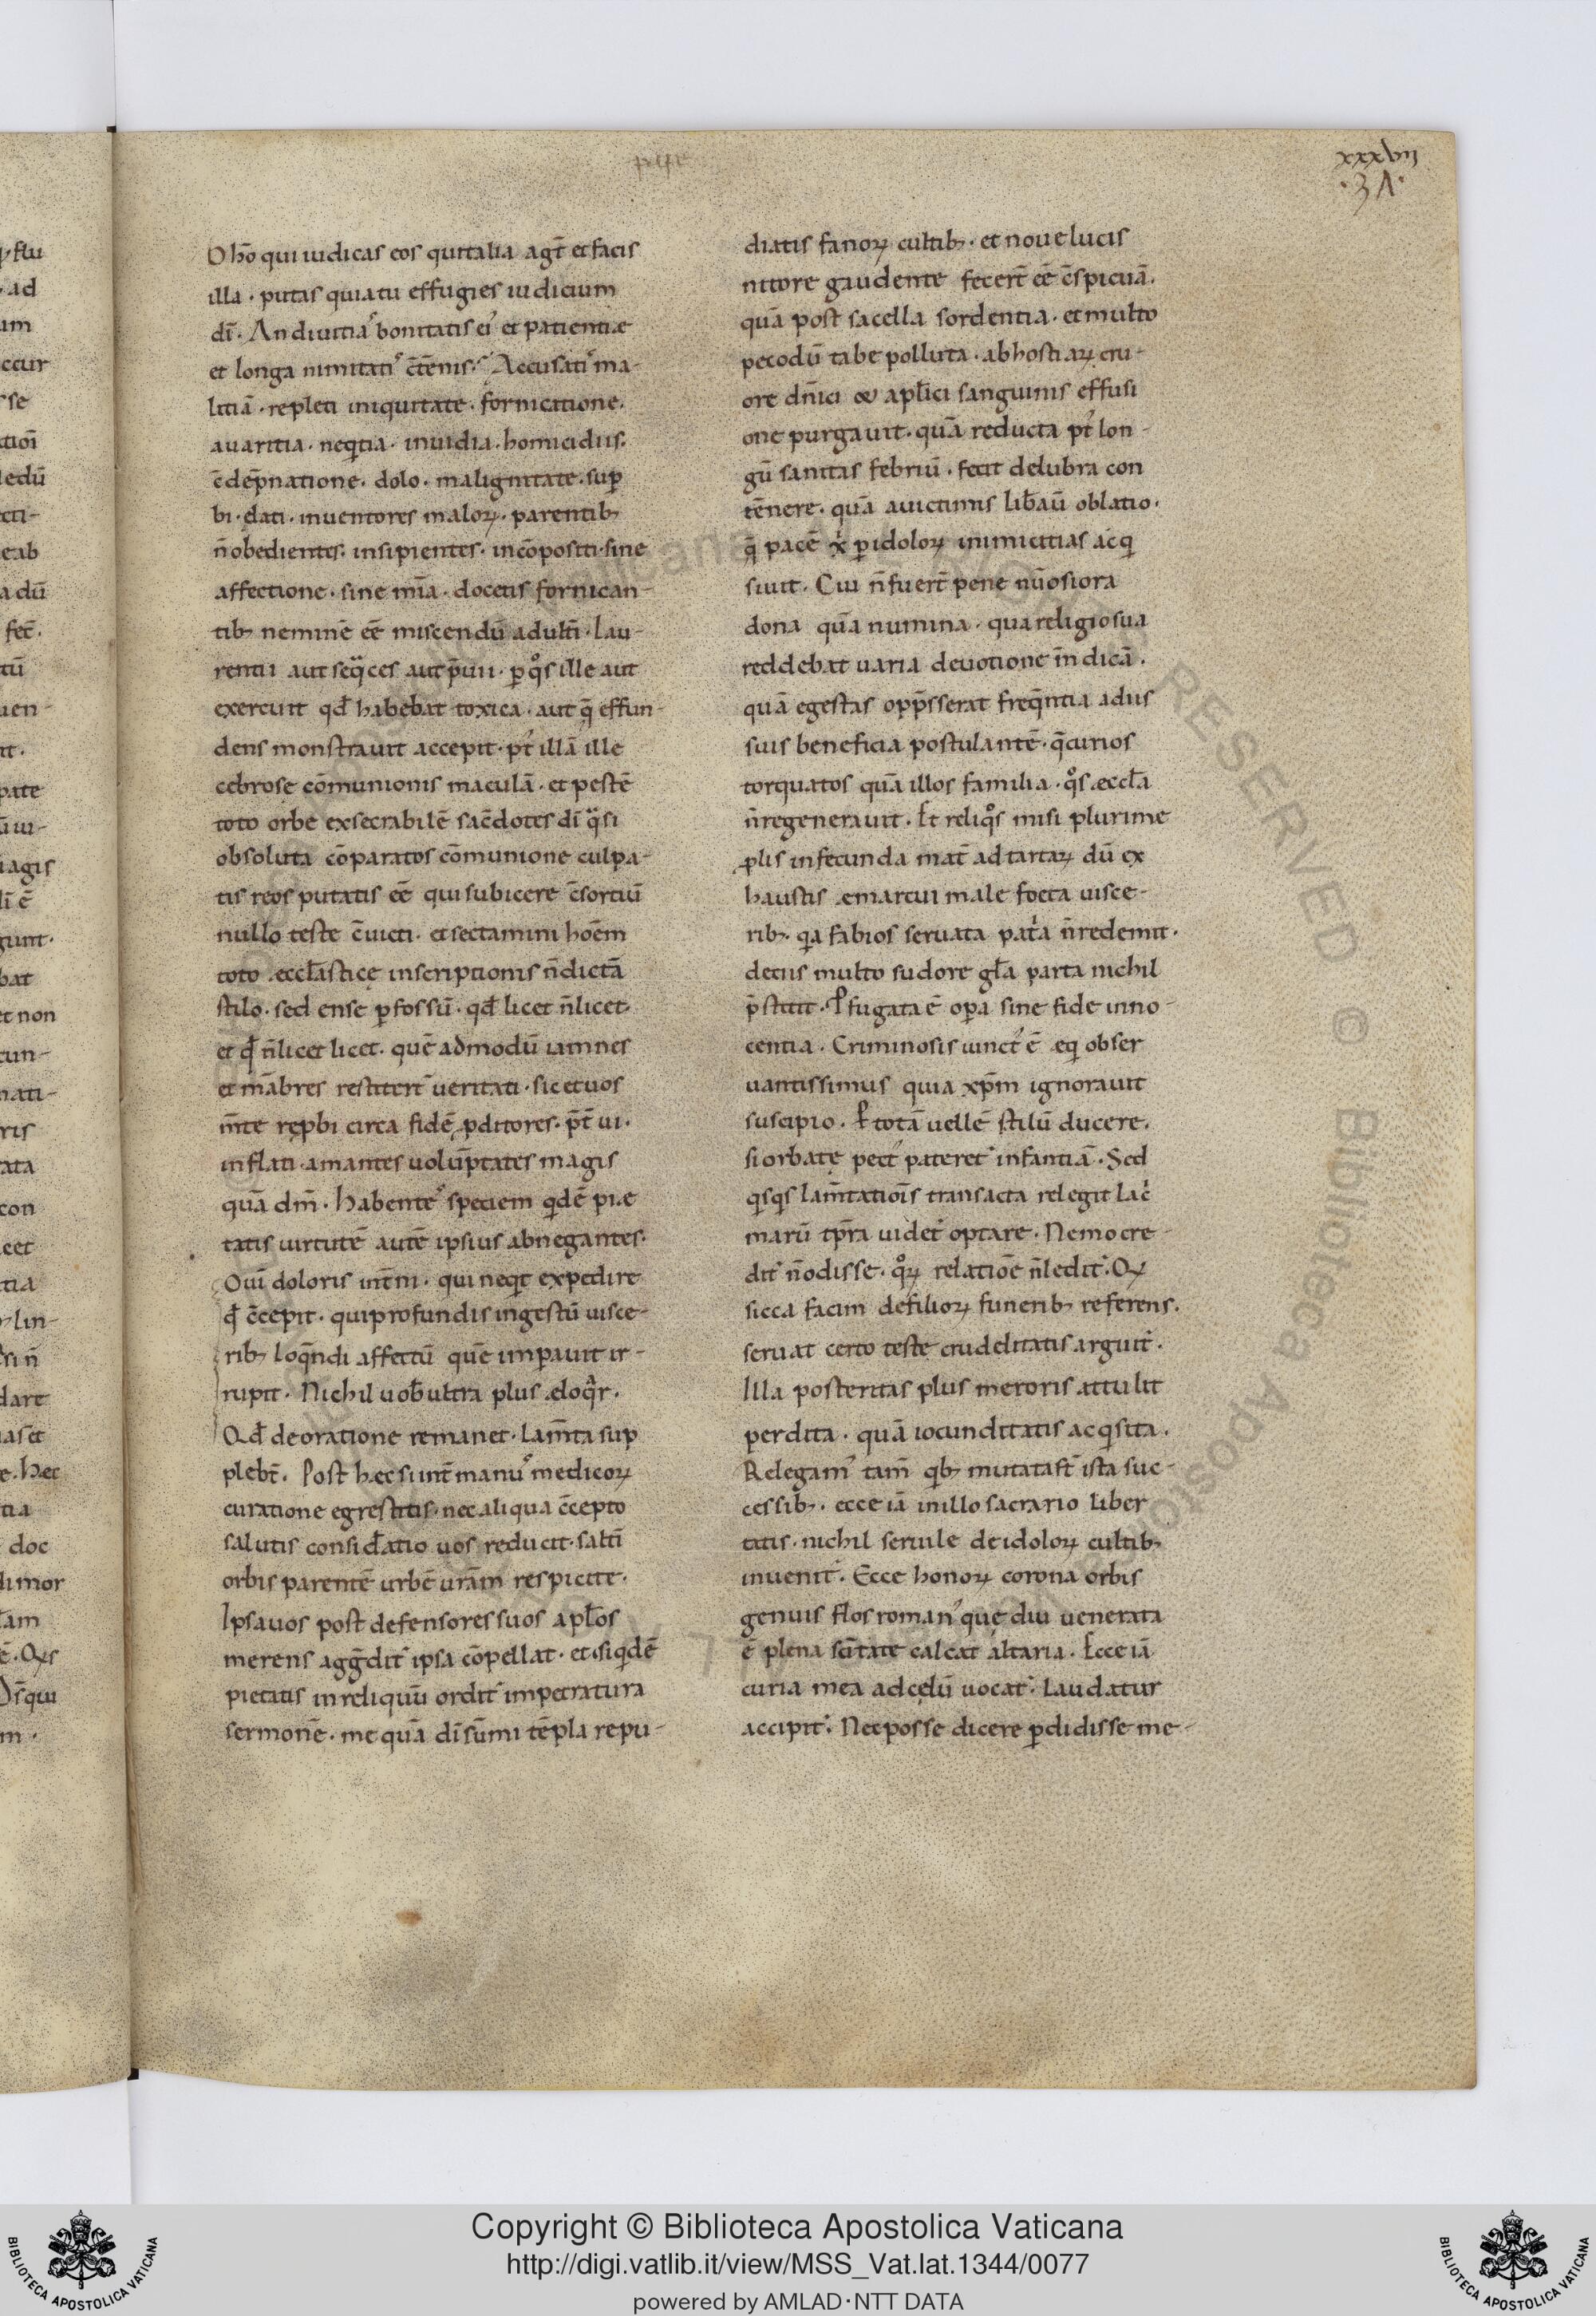 xxxvii
·37·
O hō qui iudicas eos qui talia agt̄ et facis
illa · putas quia tu effugies iudicium
dī · An diuitiaˢ bonitatis ei᾽ et patientiæ
et longanimitatiˢ c̄tēnis · Accusatiˢ ma-
litiā · repleti iniquitate · fornicatione ·
auaritia · neqͥtia · inuidia · homicidiis ·
c̄dēpnatione · dolo · malignitate · sup̄
bi · dati · inuentores maloꝝ · parentibꝫ
n̄ obedientes · insipientes · incōpositi · sine
affectione · sine mīa · docetis fornican-
tibꝫ neminē eē miscendū adultī · Lau-
rentii aut seqᵃces aut p̄uii · ꝑ qͦs ille aut
exercuit qđ habebat toxica · aut q̄ effun-
dens monstrauit accepit · pt᾽ illā ille
cebrose cōmunionis maculā · et pestē
toto orbe exsecrabilē sac̄dotes dī qᵃsi
obsoluta cōparatos cōmunione culpa-
tis reos putatis eē qui subicere c̄sortiū
nullo teste c̄uicti · et sectamini hoēm
toto ęccl̄astice inscriptionis n̄ dictā
stilo · sed ense ꝑfossū · qđ licet n̄ licet ·
et qđ n̄ licet licet · quē admodū iamnes
et mābres restitert̄ ueritati · sic et uos
m̄te rep̱bi circa fidē ꝓditores · p̄t ui ·
inflati · amantes uolūptates magis
quā dm̄ · Habenteˢ speciem qͥdē pie
tatis uirtutē autē ipsius abnegantes ·
Ouī doloris intm̄ · qui neqͥt expedire
qđ c̄cepit · qui profundis ingestū uisce-
ribꝫ loq̄ndi affectū quē imꝑauit ir-
rupit · Nichil uob̄ ultra plus ęloqͣr ·
Qđ de oratione remanet · Lam̄ta sup
plebt̄ · Post hæc sunt manuˢ medicoꝝ
curatione egrestitis · nec aliqua c̄cepto
salutis considatio uos reducit · saltī
orbis parentē urbē urām respicite ·
Ipsa uos post defensores suos apl̄os
merens aggᵃdit᾽ ipsa cōpellat · et siqͥdē
pietatis in reliquū ordit᾽ impetratura
sermonē · me quā dī sūmi tēpla repu-
diatis fanoꝝ cultibꝫ · et noue lucis
nitore gaudente fecert̄ eē c̄spicuā ·
quā post sacella sordentia · et multo
pecodū tabe polluta · ab hostiaꝝ cru-
ore dn̄ici & apl̄ici sanguinis effusi
one purgauit · quā reducta pt᾽ lon-
gū sanitas febriū · fecit delubra con
tēnere · quā a uictimis lib̄auit oblatio ·
q̄ pacē xp̄ı ꝑ idoloꝝ inimicitias acqͥ
siuit · Cui n̄ fuert̄ pene nūosiora
dona quā numina · qua religio sua
reddebat uaria deuotione m̄dicā ·
quā egestas opp̄sserat freq̄ntia a diis
suis beneficia postulantē · q̄ curios
torquatos quā illos familia · qͦs æccl̄a
n̄ regenerauit · Et reliqͦs misi plurime
ꝓlis infecunda mat̄ ad tartaꝝ dū ex
haustis ęmarcui male foeta uisce-
ribꝫ · qͥa fabios seruata patͥa n̄ redemit ·
decus multo sudore gl̄a parta nichil
p̄stitit · Pfugata ē oꝑa sine fide inno-
centia · Criminosis iunct᾽ ē ęqͥ obser
uantissimus quia xp̄m ignorauit
suscipio · Ꝑ totā uellē stilū ducere ·
si orbate pect᾽ pateret᾽ infantiā · Sed
qͥsqͥs lam̄tatiōis transacta relegit lacͥ
marū tp̄ra uidet᾽ optare · Nemo cre-
dit᾽ n̄ odisse · qͦꝝ relatiōe n̄ ledit᾽ · Qꝫ
sicca facim de filioꝝ funeribꝫ referens ·
seruat certo teste crudelitatis arguit᾽ ·
Illa posteritas plus meroris attulit
perdita · quā iocunditatis acqͥsita ·
Relegam᾽ tam̄ qͥbꝫ mutata st̄ ista suc-
cessibꝫ · ecce iā in illo sacrario liber
tatis · nichil seruile de idoloꝝ cultibꝫ
inuenit᾽ · Ecce honoꝝ corona orbis
genuis flos roman᾽ quę diu uenerata
ē plena scītate calcat altaria · Ecce iā
curia mea ad cęlū uocat᾽ · Laudatur
accipit᾽ · Nec posse dicere ꝑdidisse me-
Copyright © Biblioteca Apostolica Vaticana
http://digi.vatlib.it/view/MSS_Vat.lat.1344/0077
powered by AMLAD·NTT DATA
BIBLIOTECA APOSTOLICA VATICANA
BIBLIOTECA APOSTOLICA VATICANA